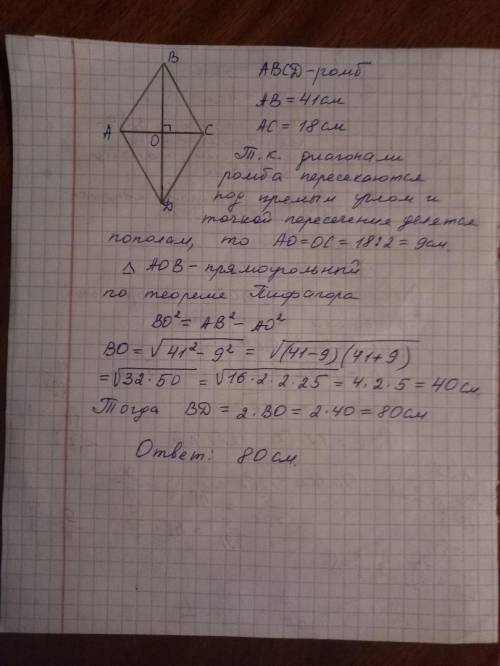 B
A
O
C
D
ABCD - ромб
AB = 41 см
AC = 18 см
Т.к. диагонали
ромба пересекаются
под прямым углом и
точкой пересечения делятся
пополам, то AO = OC = 18:2 = 9 см.
△ AOB - прямоугольный
по теореме Пифагора
BO² = AB² - AO²
BO = √41² - 9² = √(41-9)(41+9)
= √32·50 = √16·2·2·25 = 4·2·5 = 40 см.
Тогда BD = 2·BO = 2·40 = 80 см
Ответ: 80 см.